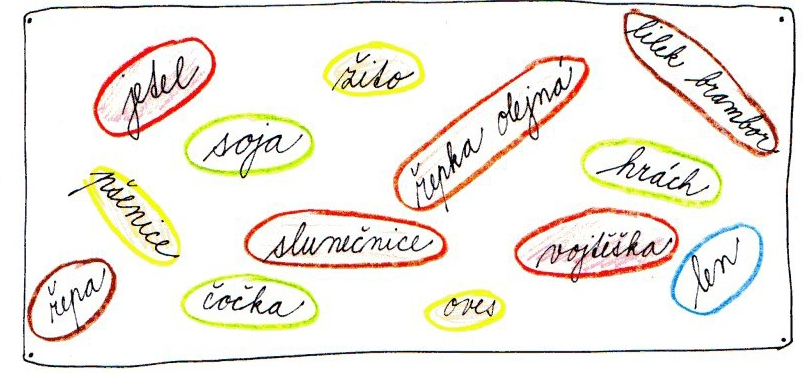 jetel
žito
lilek brambor
soja
řepka olejná
hrách
pšenice
slunečnice
vojtěška
len
řepa
čočka
oves